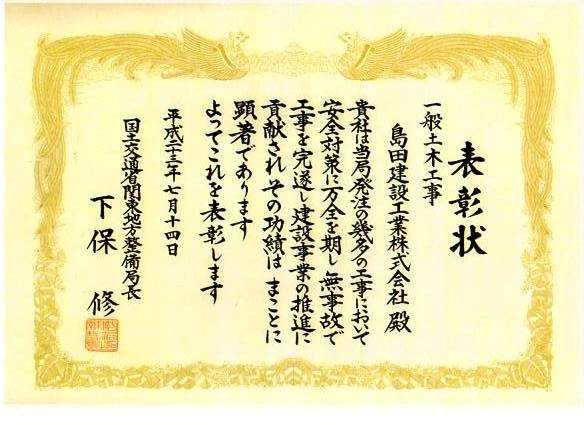 表彰状
一般土木工事
島田建設工業株式会社 殿
貴社は当局発注の幾多の工事において
安全対策に万全を期し無事故で
工事を完遂し建設事業の推進に
貢献されその功績はまことに
顕著であります
よってこれを表彰します
平成二十三年七月十四日
国土交通省関東地方整備局長
下保 修